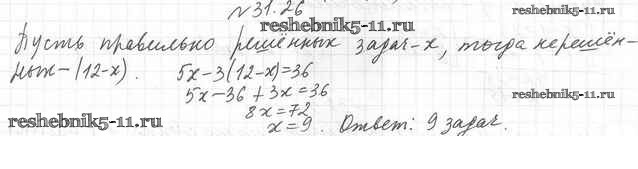 №31.26
reshebnik5-11.ru
reshebnik5-11.ru
Пусть правильно решённых задач-х, тогда нерешён-
ных-(12-х). 5х-3(12-х)=36
5х-36+3х=36
reshebnik5-11.ru
8х=72
reshebnik5-11.ru
х=9. Ответ: 9 задач.